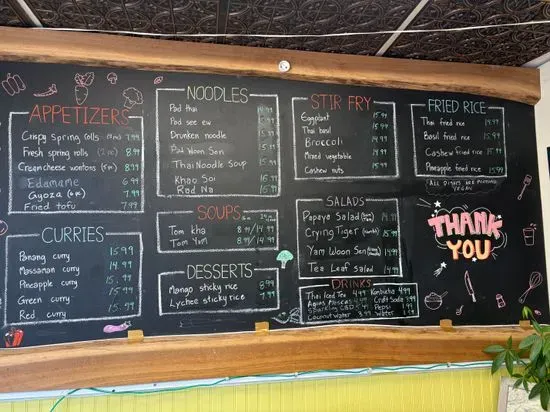 APPETIZERS
Crispy Spring rolls 7.99
Fresh spring rolls 8.99
Cream cheese wontons 8.99
Edamame 6.99
Gyoza 7.99
Fried tofu 7.99
CURRIES
Panang curry 15.99
Massaman curry 14.99
Pineapple curry 15.99
Green curry 15.99
Red curry 15.99
NOODLES
Pad thai 14.99
Pad see ew 15.99
Drunken noodle 15.99
Pad Woon Sen 15.99
Thai Noodle Soup 15.99
Khao Soi 15.99
Rad Na 15.99
SOUPS
Tom kha 8.99/14.99
Tom Yum 8.99/14.99
DESSERTS
Mango sticky rice 8.99
Lychee sticky rice 7.99
STIR FRY
Eggplant 15.99
Thai basil 15.99
Broccoli 14.99
Mixed vegetable 14.99
Cashew nuts 15.99
SALADS
Papaya Salad 14.99
Crying Tiger 15.99
Yam Woon Sen 14.99
Tea Leaf Salad 14.99
DRINKS
Thai Iced Tea 4.99 Kombucha 4.99
Craft Soda 3.99
Sparkling CBD Pepsi
Coconut water 3.99 water 1.99
FRIED RICE
Thai fried rice 14.99
Basil fried rice 15.99
Cashew fried rice 15.99
Pineapple fried rice 15.99
ALL DISHES ARE
VEGAN
THANK
YOU